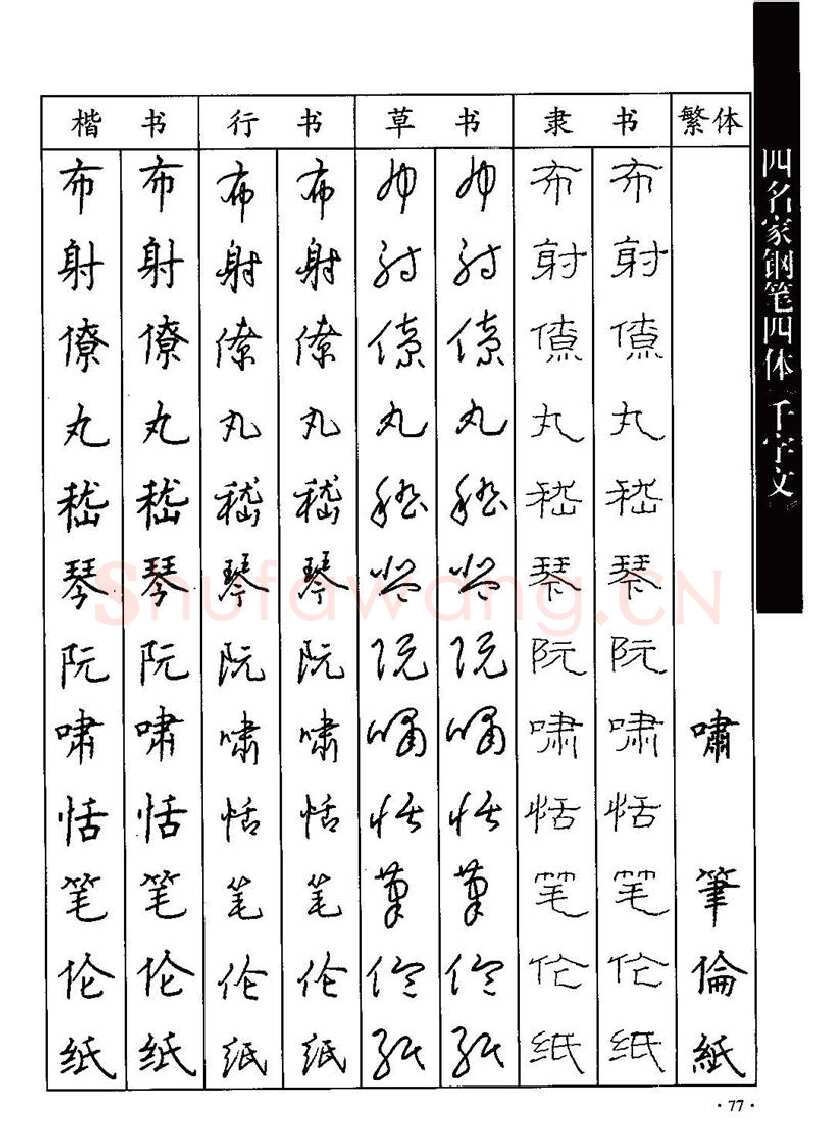 楷书 行书 草书 隶书 繁体
布 布 布 布 布 布 布 布
射 射 射 射 射 射 射 射
僚 僚 僚 僚 僚 僚 僚 僚
丸 丸 丸 丸 丸 丸 丸 丸
嵇 嵇 嵇 嵇 嵇 嵇 嵇 嵇
琴 琴 琴 琴 琴 琴 琴 琴
阮 阮 阮 阮 阮 阮 阮 阮
啸 啸 啸 啸 啸 啸 啸 啸 嘯
恬 恬 恬 恬 恬 恬 恬 恬
笔 笔 笔 笔 笔 笔 笔 笔 筆
伦 伦 伦 伦 伦 伦 伦 伦 倫
纸 纸 纸 纸 纸 纸 纸 纸 紙
四名家钢笔四体千字文
Shufawang.CN
·77·